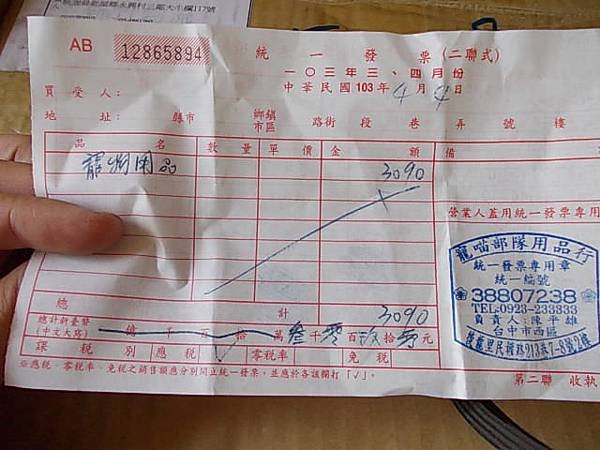 AB 12865894
統一發票(二聯式)
一〇三年三、四月份
中華民國103年4月4日
買受人:
地址: 縣市 鄉鎮市區 路街 段 巷 弄 號 樓
品名 數量 單價 金額 備
寵物用品 3090
營業人蓋用統一發票專用
總計 3090
總計新臺幣(中文大寫) 億 千 百 拾 萬 叁千零百玖拾零元
課稅別 應稅 ✓ 零稅率 免稅
※應稅、零稅率、免稅之銷售額應分別開立統一發票,並應於各該欄打「✓」。
第二聯 收執
龍喵部隊用品行
統一發票專用章
統一編號
38807238
TEL:0923-233333
負責人:陳平雄
台中市西區
後龍里民權路213巷7-8號2樓